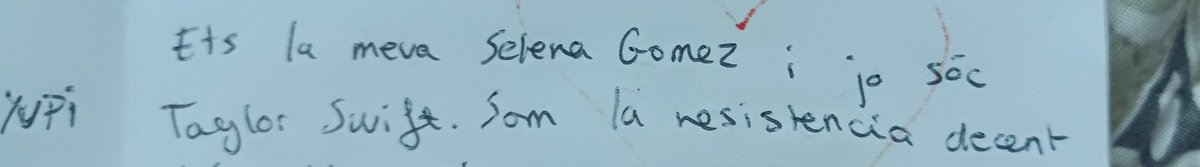 Ets la meva Selena Gomez i jo sóc
Taylor Swift. Som la resistencia decent